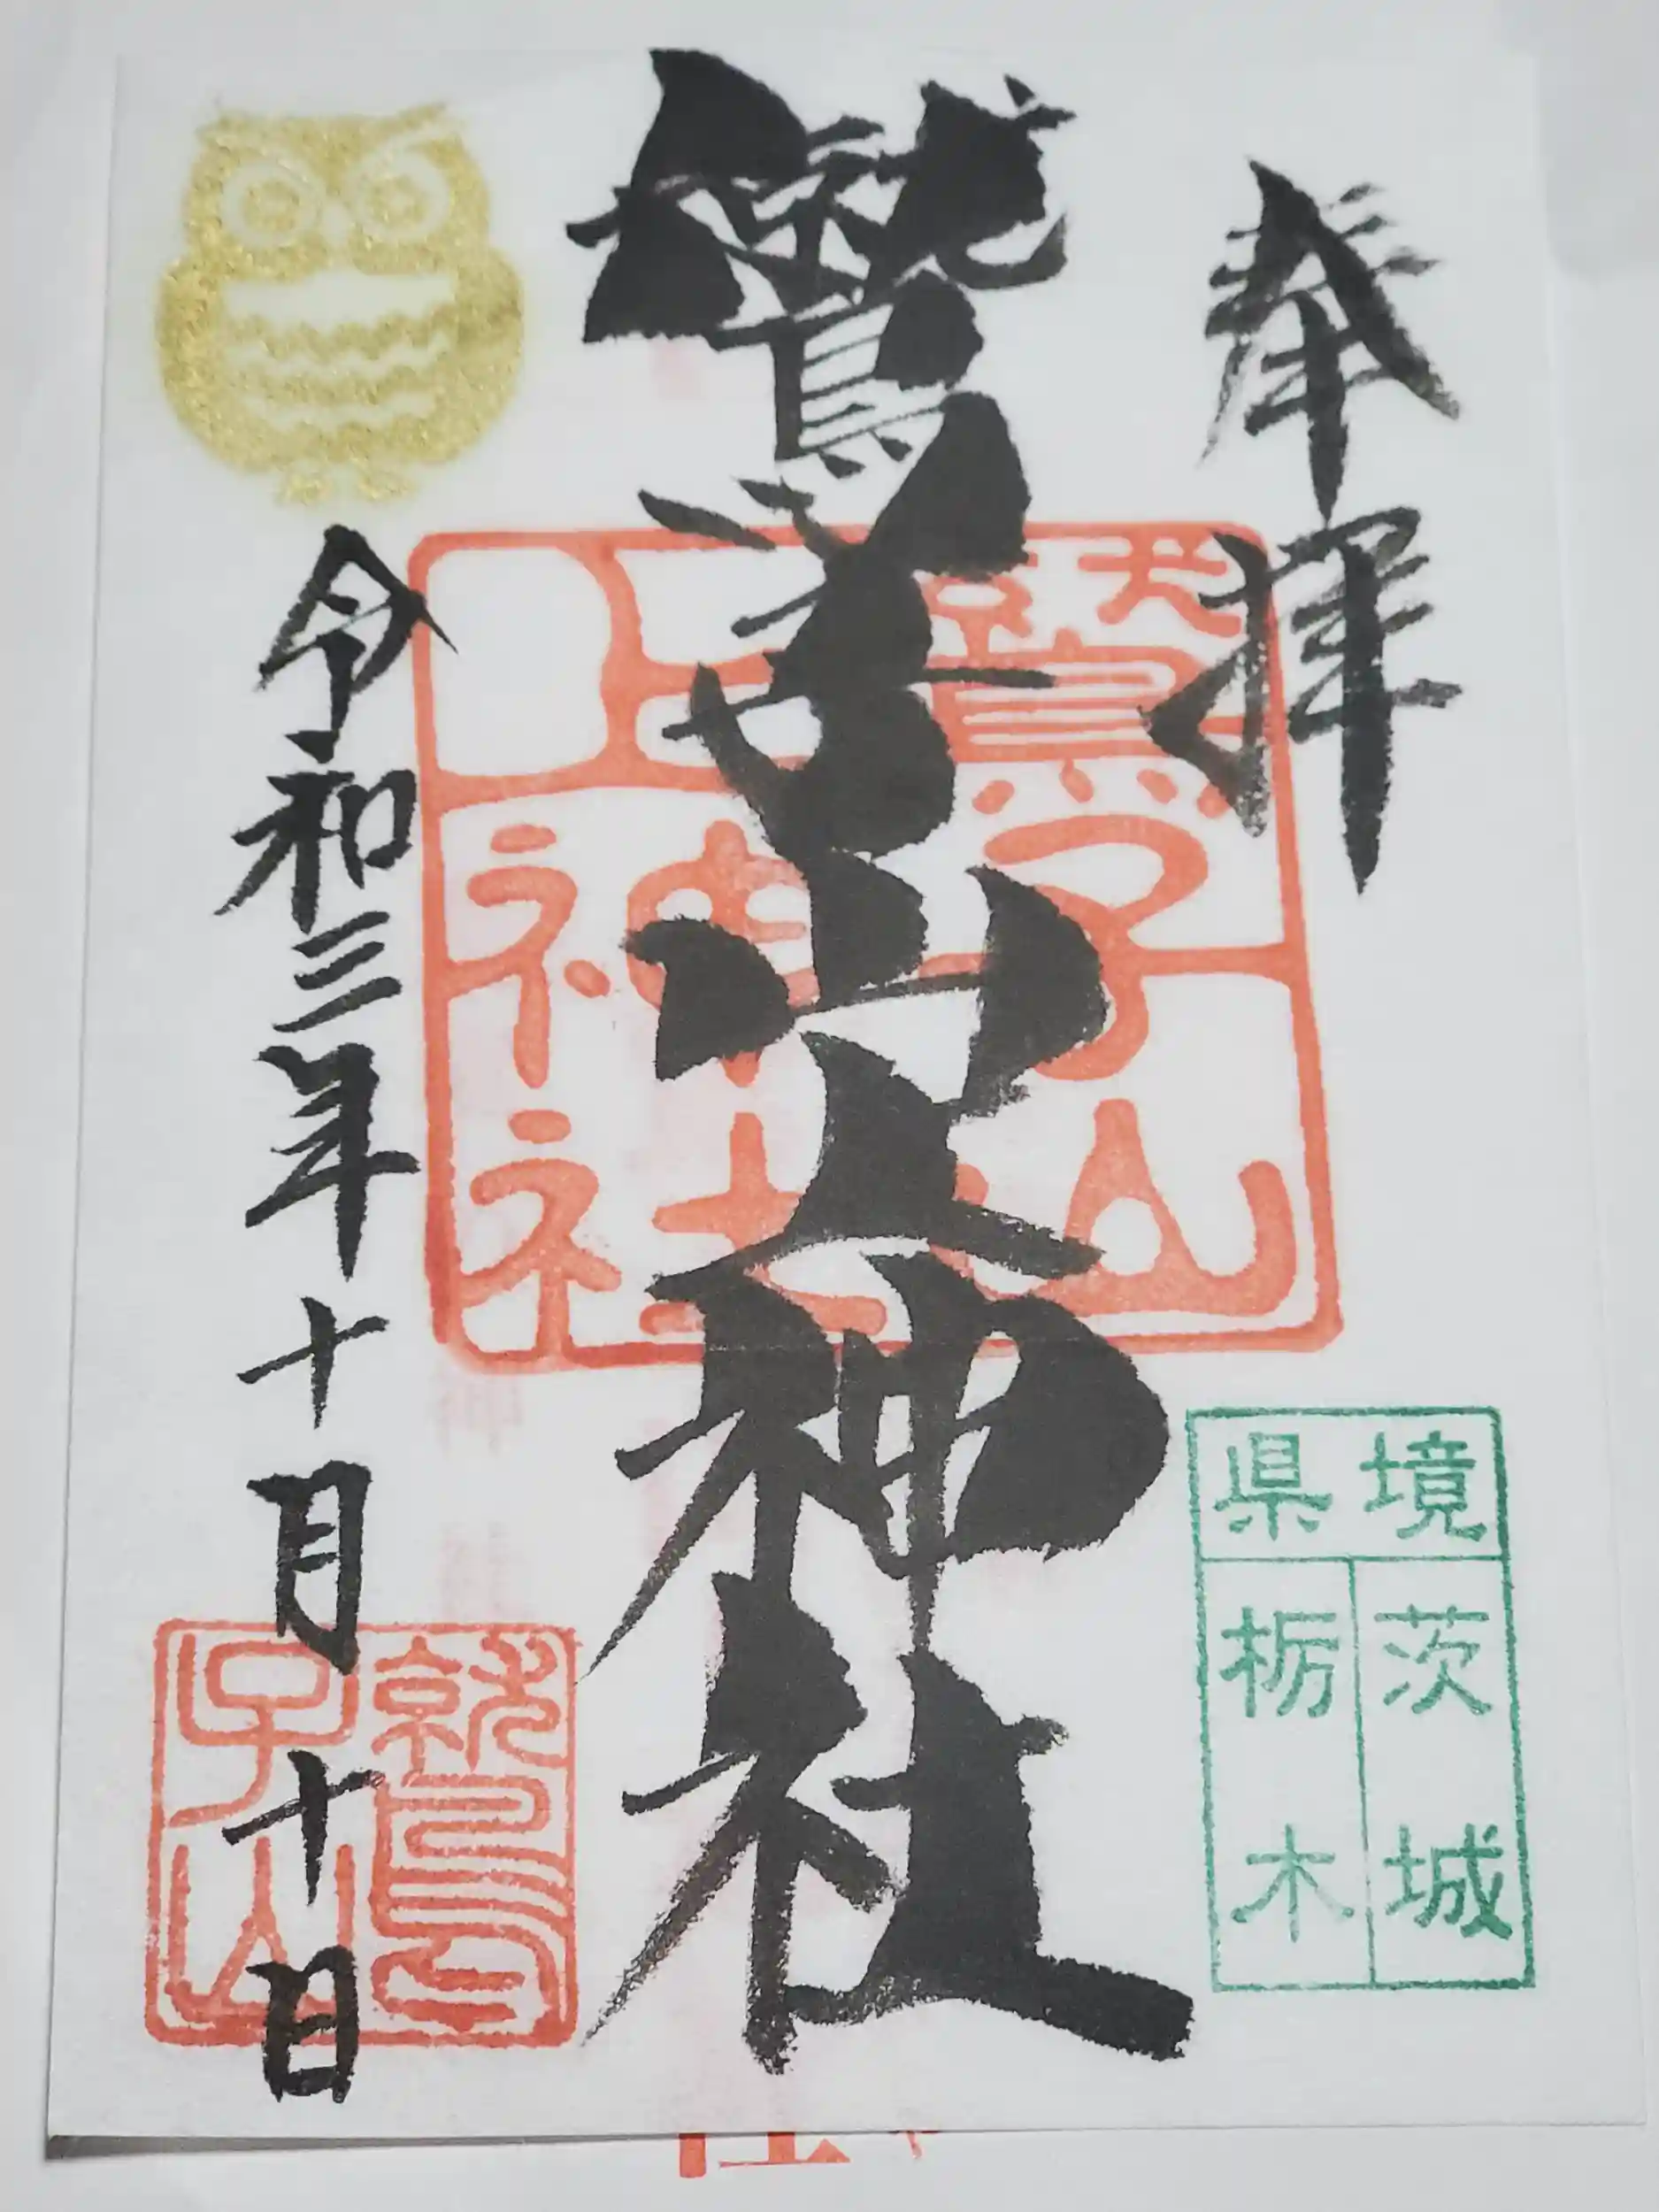 奉拝
鷲子山上神社
令和三年十月十日
鷲子山
上神社
県境
茨城
栃木
鷲
子山